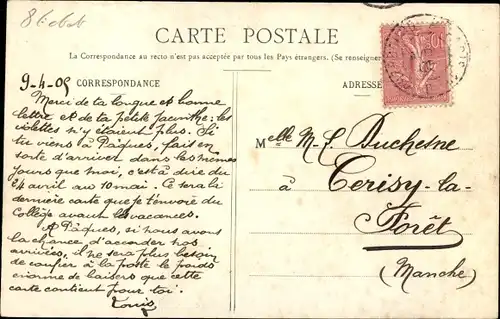 CARTE POSTALE
La Correspondance au recto n'est pas acceptée par tous les Pays étrangers. (Se renseigner
9-4-05 CORRESPONDANCE
ADRESSE
Merci de ta longue et bonne
lettre et de ta petite jacinthe: les
violettes n'y étaient plus. Si
tu viens à Pâques, fais en
sorte d'arriver dans les mêmes
jours que moi, c'est à dire du
avril au 10 mai. Ce sera la
dernière carte que je t'envoie du
Collège avant les vacances.
A Pâques, si nous avons
la chance d'accorder nos
arrivées, il ne sera plus besoin
de confier à la poste le poids
énorme de baisers que cette
carte contient pour toi.
Louis
Melle M-L. Duchesne
à Cerisy-la-
Forêt
(Manche)
10